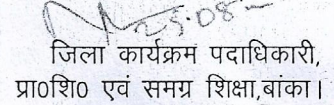 25.08
जिला कार्यक्रम पदाधिकारी,
प्रा0शि0 एवं समग्र शिक्षा,बांका।